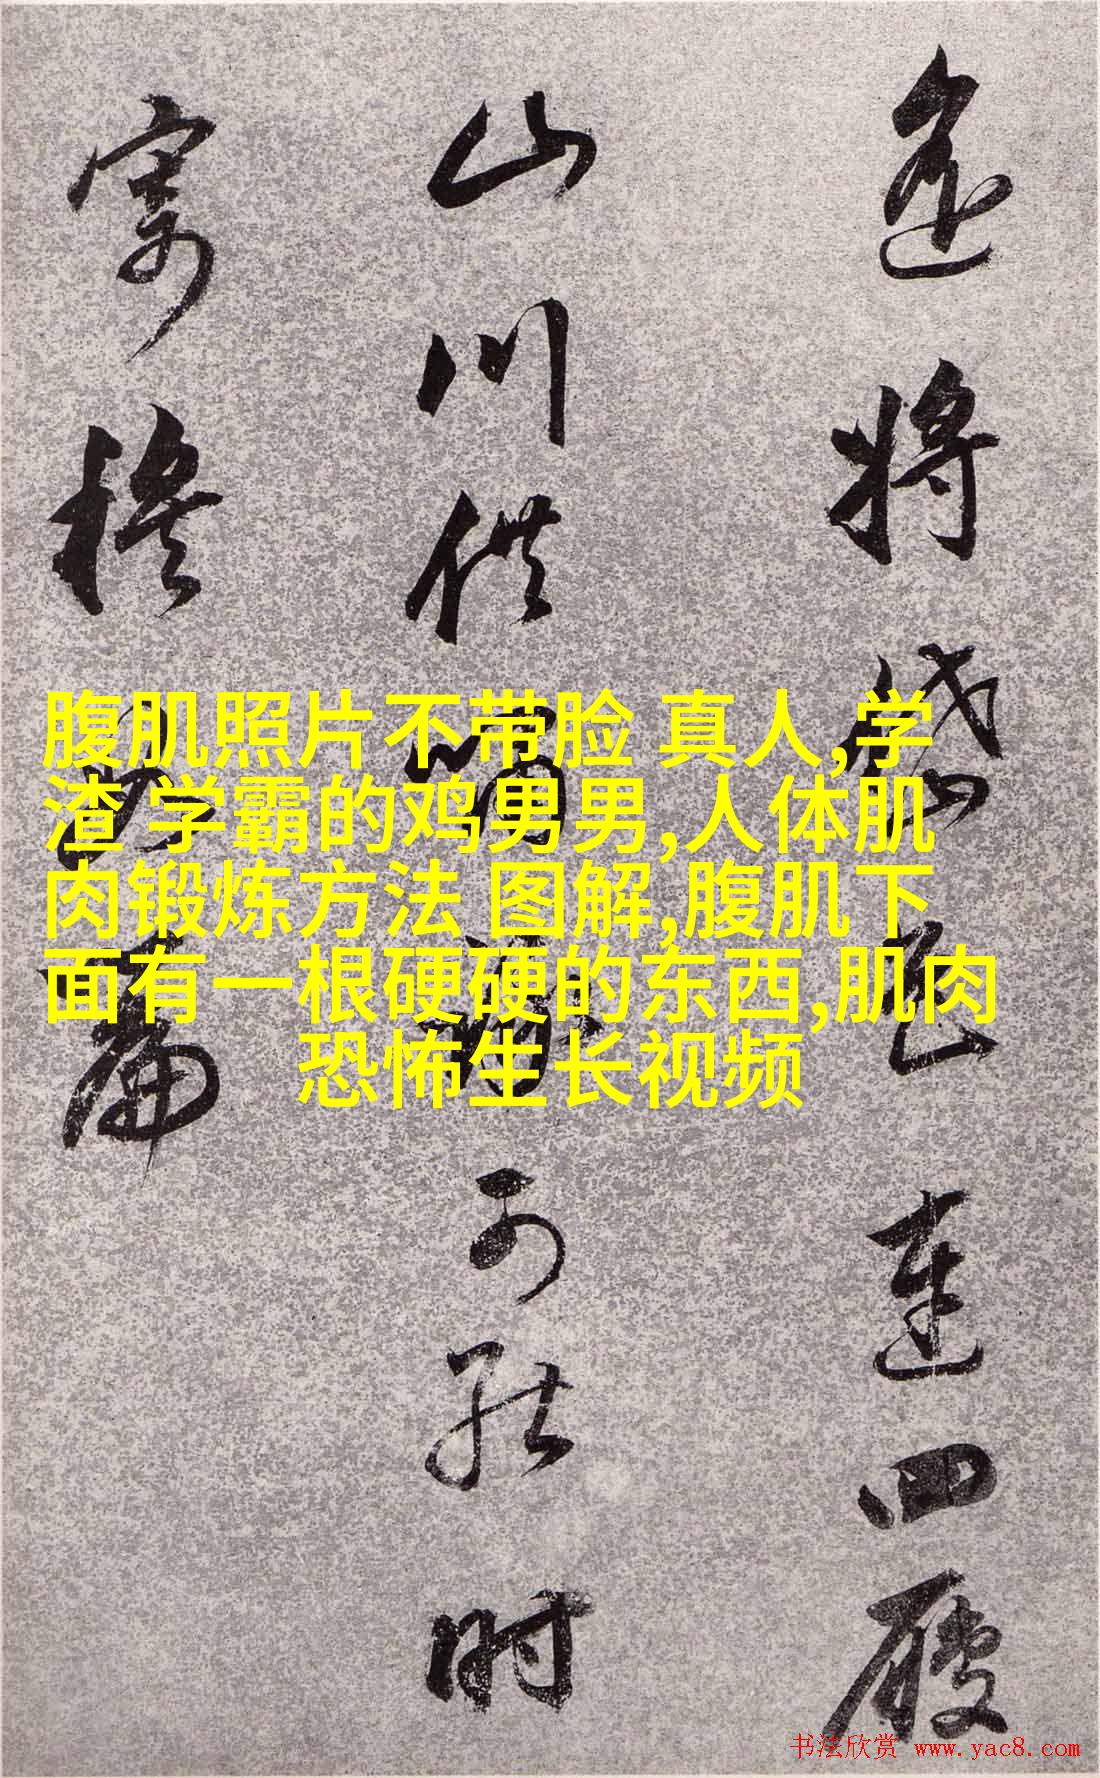 遙將岱色連四履
山川供嘯可能時
寄穆篇
腹肌照片不带脸 真人,学
渣 学霸的鸡男男,人体肌
肉锻炼方法 图解,腹肌下
面有一根硬硬的东西,肌肉
恐怖生长视频
书法欣赏 www.yac8.com